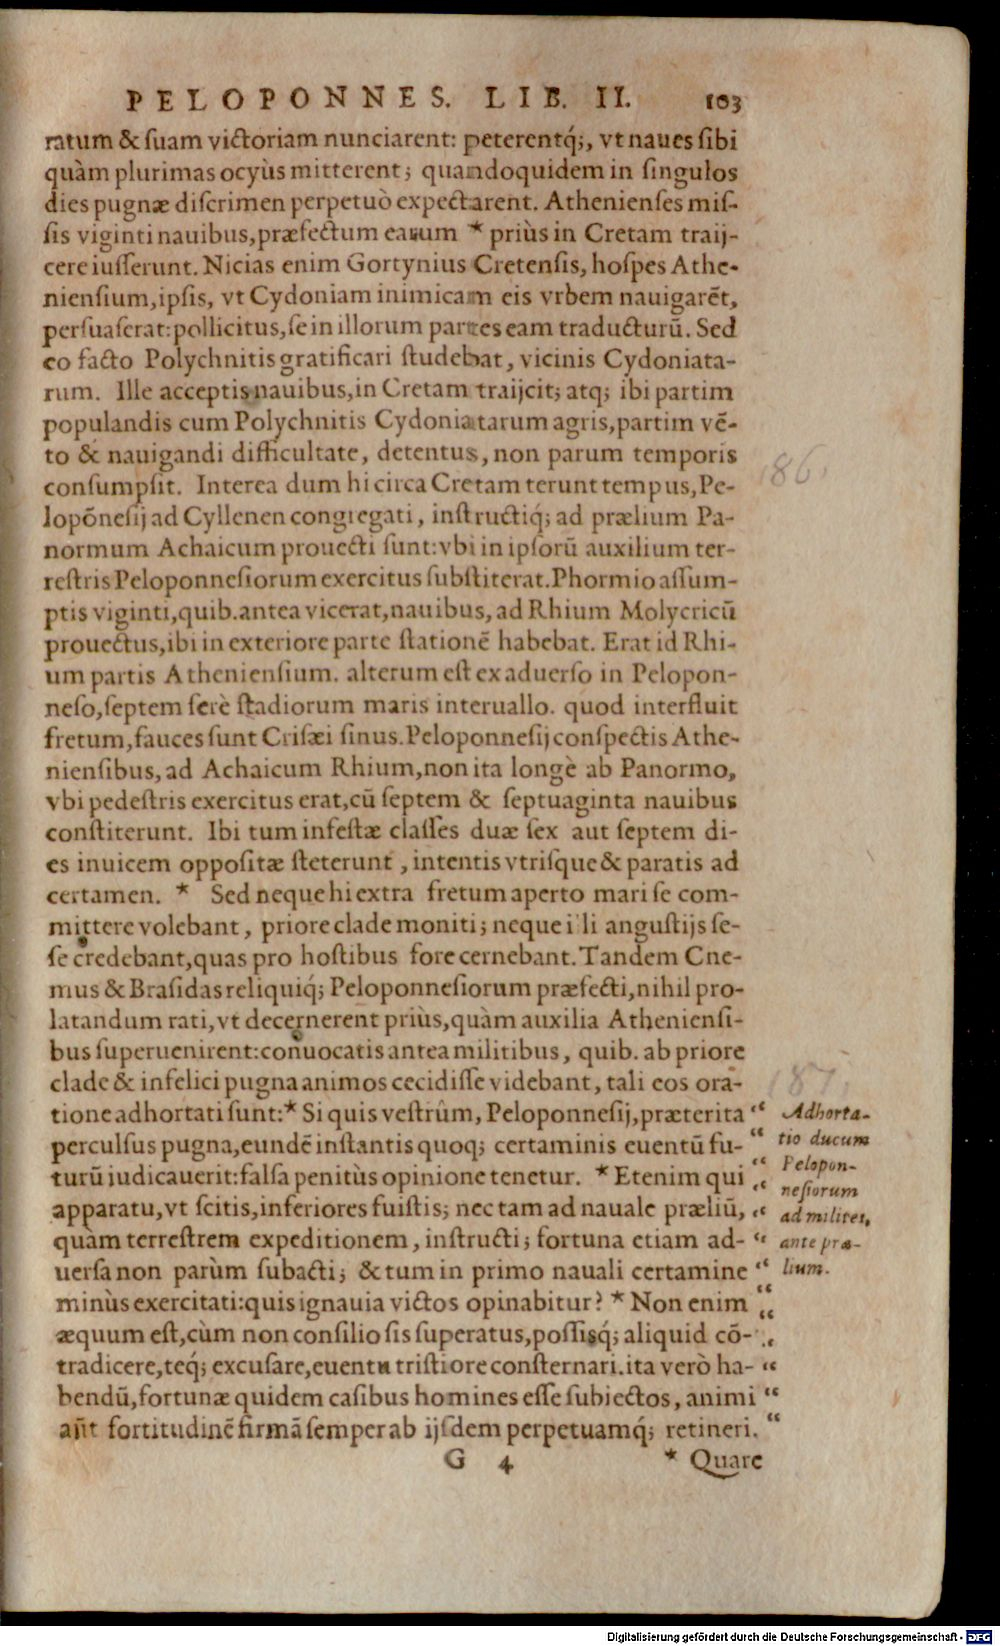 PELOPONNES. LIB. II. 103
ratum & suam victoriam nunciarent: peterentq́;, vt naues sibi
quàm plurimas ocyùs mitterent; quandoquidem in singulos
dies pugnæ discrimen perpetuò expectarent. Athenienses mis-
sis viginti nauibus, præfectum earum * priùs in Cretam traij-
cere iusserunt. Nicias enim Gortynius Cretensis, hospes Athe-
niensium, ipsis, vt Cydoniam inimicam eis vrbem nauigarēt,
persuaserat: pollicitus, se in illorum partes eam traducturū. Sed
eo facto Polychnitis gratificari studebat, vicinis Cydoniata-
rum. Ille acceptis nauibus, in Cretam traijcit; atq; ibi partim
populandis cum Polychnitis Cydoniatarum agris, partim vē-
to & nauigandi difficultate, detentus, non parum temporis
consumpsit. Interea dum hi circa Cretam terunt tempus, Pe-
lopōnesij ad Cyllenen congregati, instructiq́; ad prælium Pa-
normum Achaicum prouecti sunt: vbi in ipsorū auxilium ter-
restris Peloponnesiorum exercitus substiterat. Phormio assum-
ptis viginti, quib. antea vicerat, nauibus, ad Rhium Molycricū
prouectus, ibi in exteriore parte stationē habebat. Erat id Rhi-
um partis Atheniensium. alterum est ex aduerso in Pelopon-
neso, septem ferè stadiorum maris interuallo. quod interfluit
fretum, fauces sunt Crisæi sinus. Peloponnesij conspectis Athe-
niensibus, ad Achaicum Rhium, non ita longè ab Panormo,
vbi pedestris exercitus erat, cū septem & septuaginta nauibus
constiterunt. Ibi tum infestæ classes duæ sex aut septem di-
es inuicem oppositæ steterunt, intentis vtrisque & paratis ad
certamen. * Sed neque hi extra fretum aperto mari se com-
mittere volebant, priore clade moniti; neque illi angustijs se-
se credebant, quas pro hostibus fore cernebant. Tandem Cne-
mus & Brasidas reliquiq́; Peloponnesiorum præfecti, nihil pro-
latandum rati, vt decernerent priùs, quàm auxilia Atheniensi-
bus superuenirent: conuocatis antea militibus, quib. ab priore
clade & infelici pugna animos cecidisse videbant, tali eos ora-
tione adhortati sunt: * Si quis vestrûm, Peloponnesij, præterita “
perculsus pugna, eundē instantis quoq; certaminis euentū fu- “
turū iudicauerit: falsa penitùs opinione tenetur. * Etenim qui “
apparatu, vt scitis, inferiores fuistis; nec tam ad nauale præliū, “
quàm terrestrem expeditionem, instructi; fortuna etiam ad- “
uersa non parùm subacti; & tum in primo nauali certamine “
minùs exercitati: quis ignauia victos opinabitur? * Non enim “
æquum est, cùm non consilio sis superatus, possisq́; aliquid cō- “
tradicere, teq́; excusare, euentu tristiore consternari. ita verò ha- “
bendū, fortunæ quidem casibus homines esse subiectos, animi “
aūt fortitudinē firmā semper ab ijsdem perpetuamq́; retineri. “
G 4 * Quare
186.
187.
Adhorta-
tio ducum
Pelopon-
nesiorum
ad milites,
ante præ-
lium.
Digitalisierung gefördert durch die Deutsche Forschungsgemeinschaft - DFG